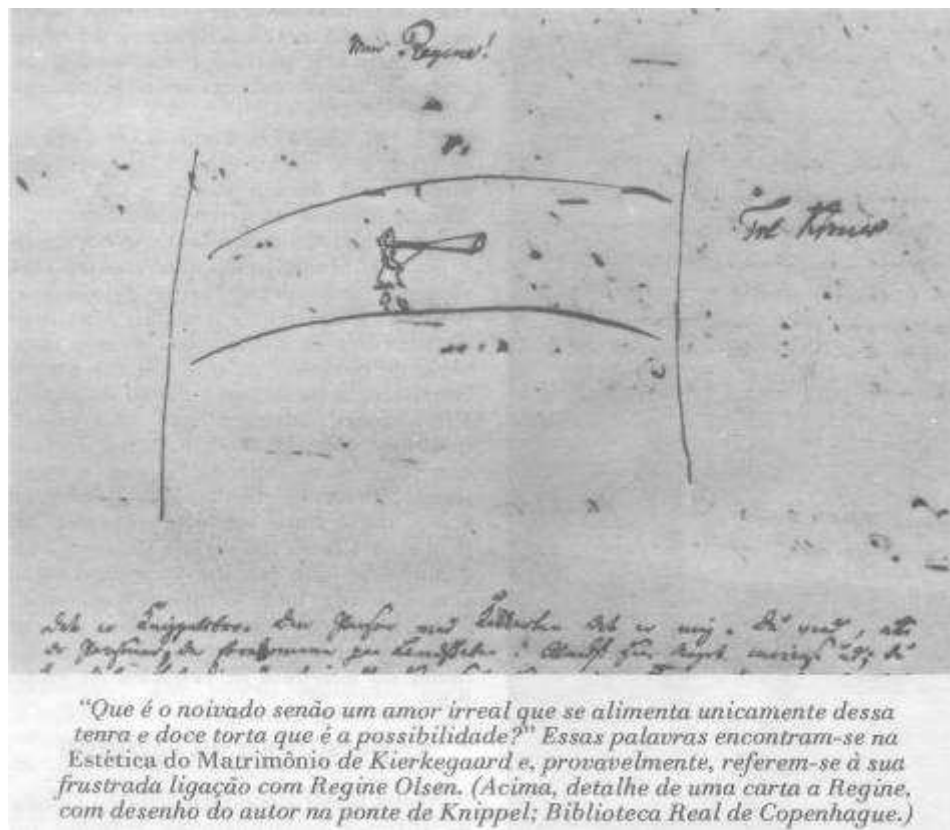 Min Regine!
Det er Knippelsbro. Den Person med Kikkerten det er mig. Du veed, at
"Que é o noivado senão um amor irreal que se alimenta unicamente dessa
tenra e doce torta que é a possibilidade?" Essas palavras encontram-se na
Estética do Matrimônio de Kierkegaard e, provavelmente, referem-se à sua
frustrada ligação com Regine Olsen. (Acima, detalhe de uma carta a Regine,
com desenho do autor na ponte de Knippel; Biblioteca Real de Copenhague.)